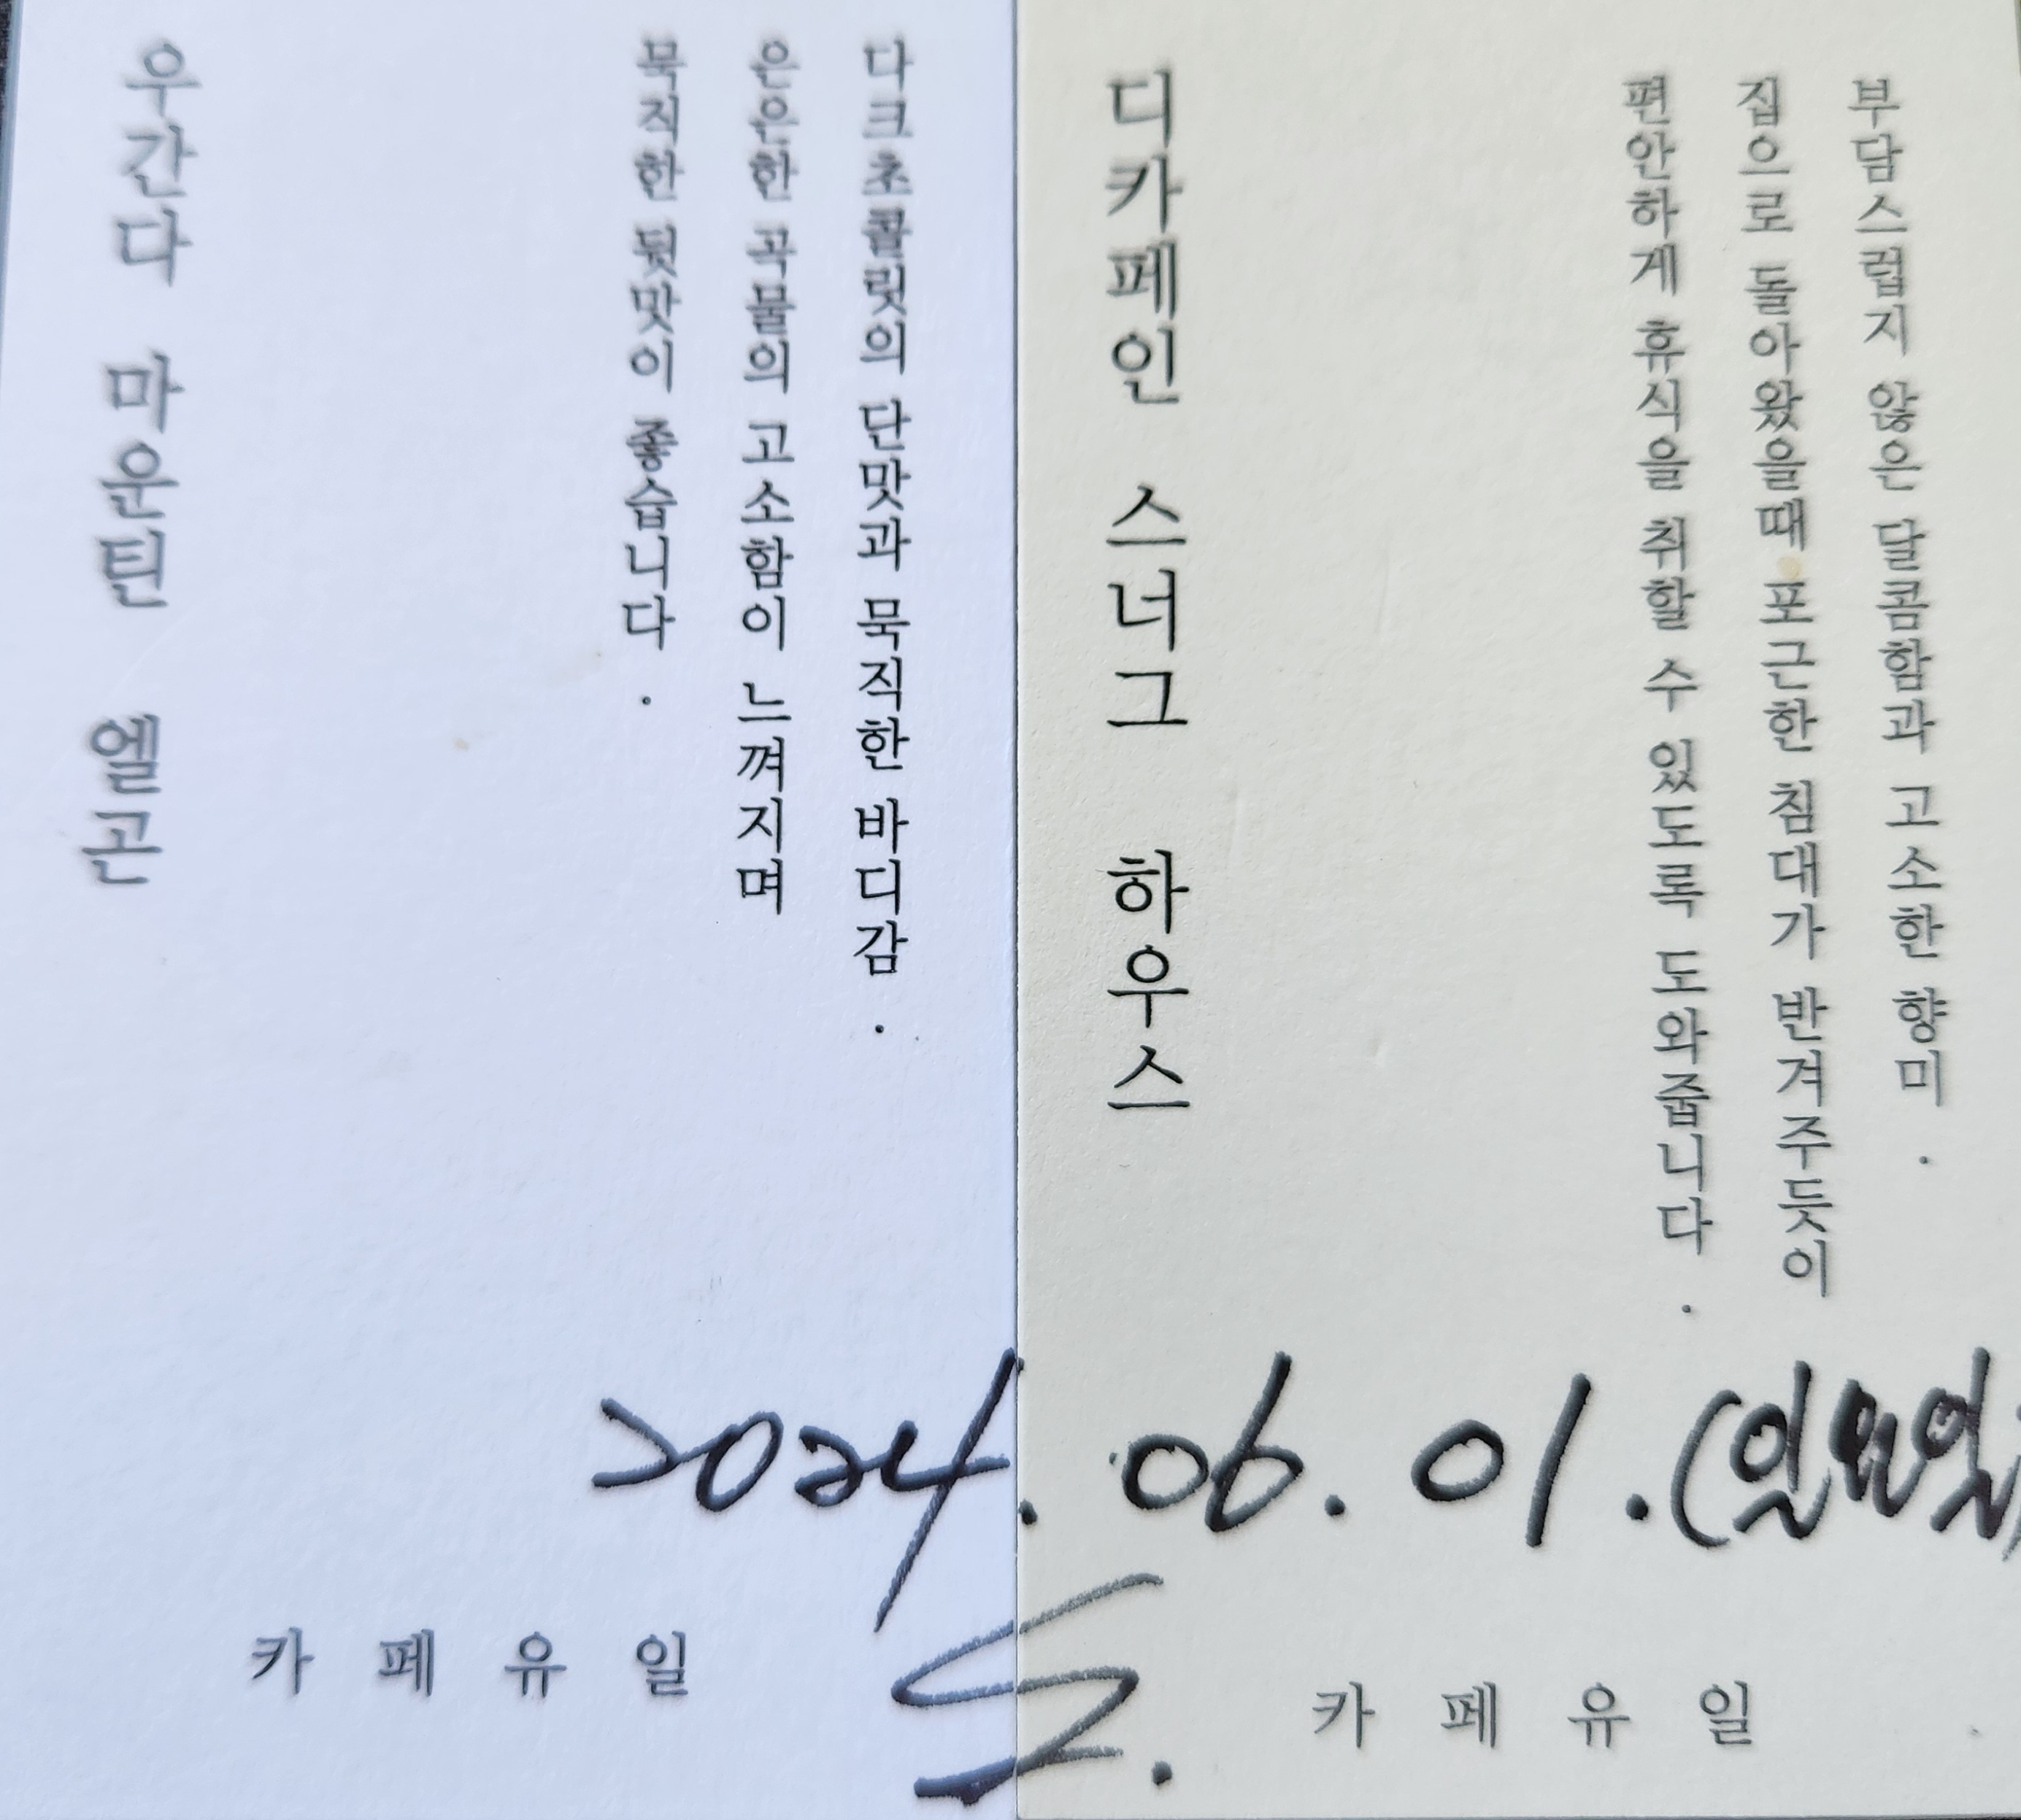 다크초콜릿의 단맛과 묵직한 바디감.
은은한 곡물의 고소함이 느껴지며
묵직한 뒷맛이 좋습니다.
우간다 마운틴 엘곤
카페유일
부담스럽지 않은 달콤함과 고소한 향미.
집으로 돌아왔을때 포근한 침대가 반겨주듯이
편안하게 휴식을 취할 수 있도록 도와줍니다.
디카페인 스너그 하우스
2024.06.01.(일요일)
카페유일